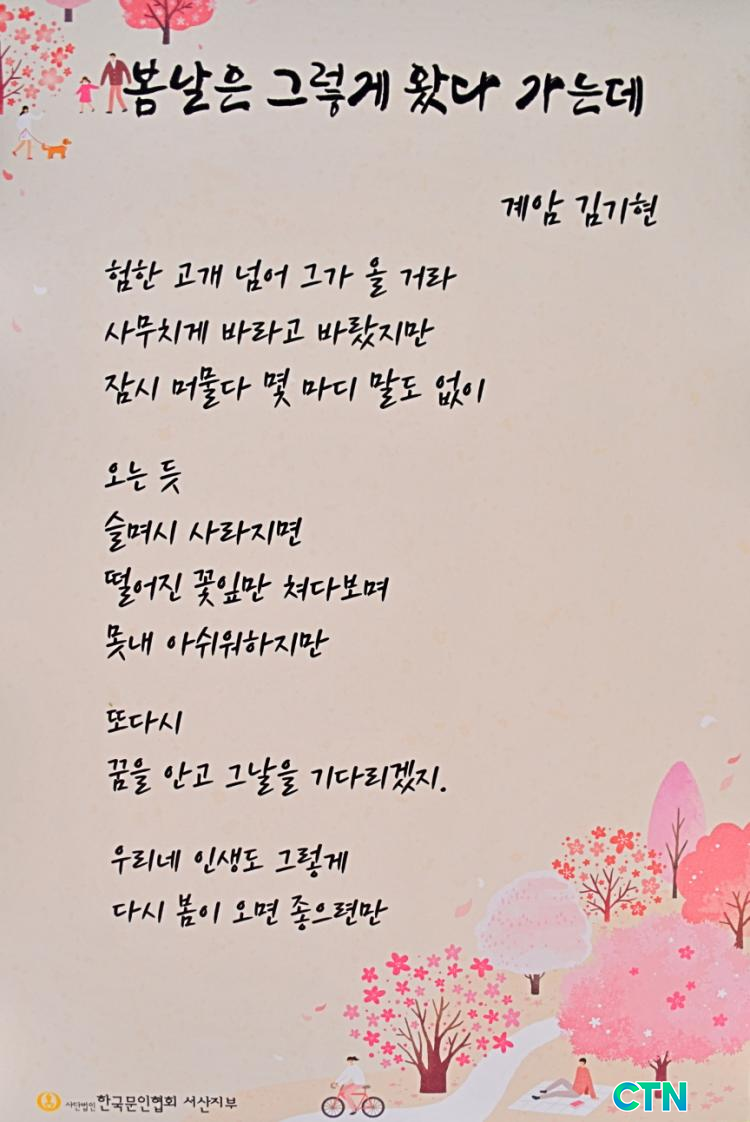 봄날은 그렇게 왔다 가는데
계암 김기현
험한 고개 넘어 그가 올 거라
사무치게 바라고 바랐지만
잠시 머물다 몇 마디 말도 없이
오는 듯
슬며시 사라지면
떨어진 꽃잎만 쳐다보며
못내 아쉬워하지만
또다시
꿈을 안고 그날을 기다리겠지.
우리네 인생도 그렇게
다시 봄이 오면 좋으련만
사단법인 한국문인협회 서산지부
CTN